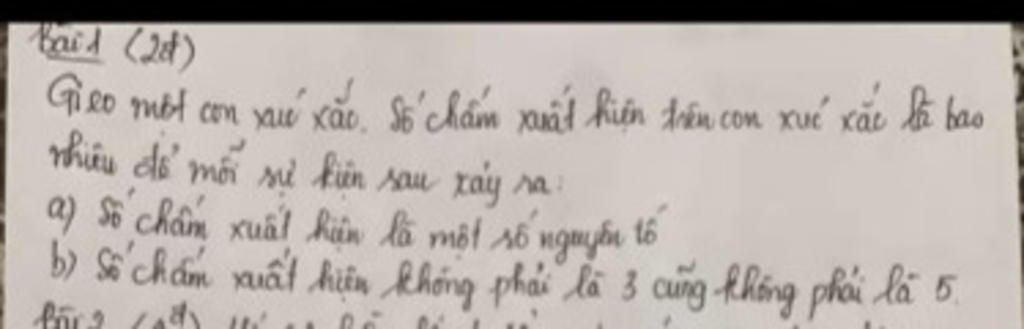 Bài 1 (2đ)
Gieo một con xúc xắc. Số chấm xuất hiện trên con xúc xắc là bao
nhiêu để mỗi sự kiện sau xảy ra:
a) Số chấm xuất hiện là một số nguyên tố
b) Số chấm xuất hiện không phải là 3 cũng không phải là 5.
Bài 2